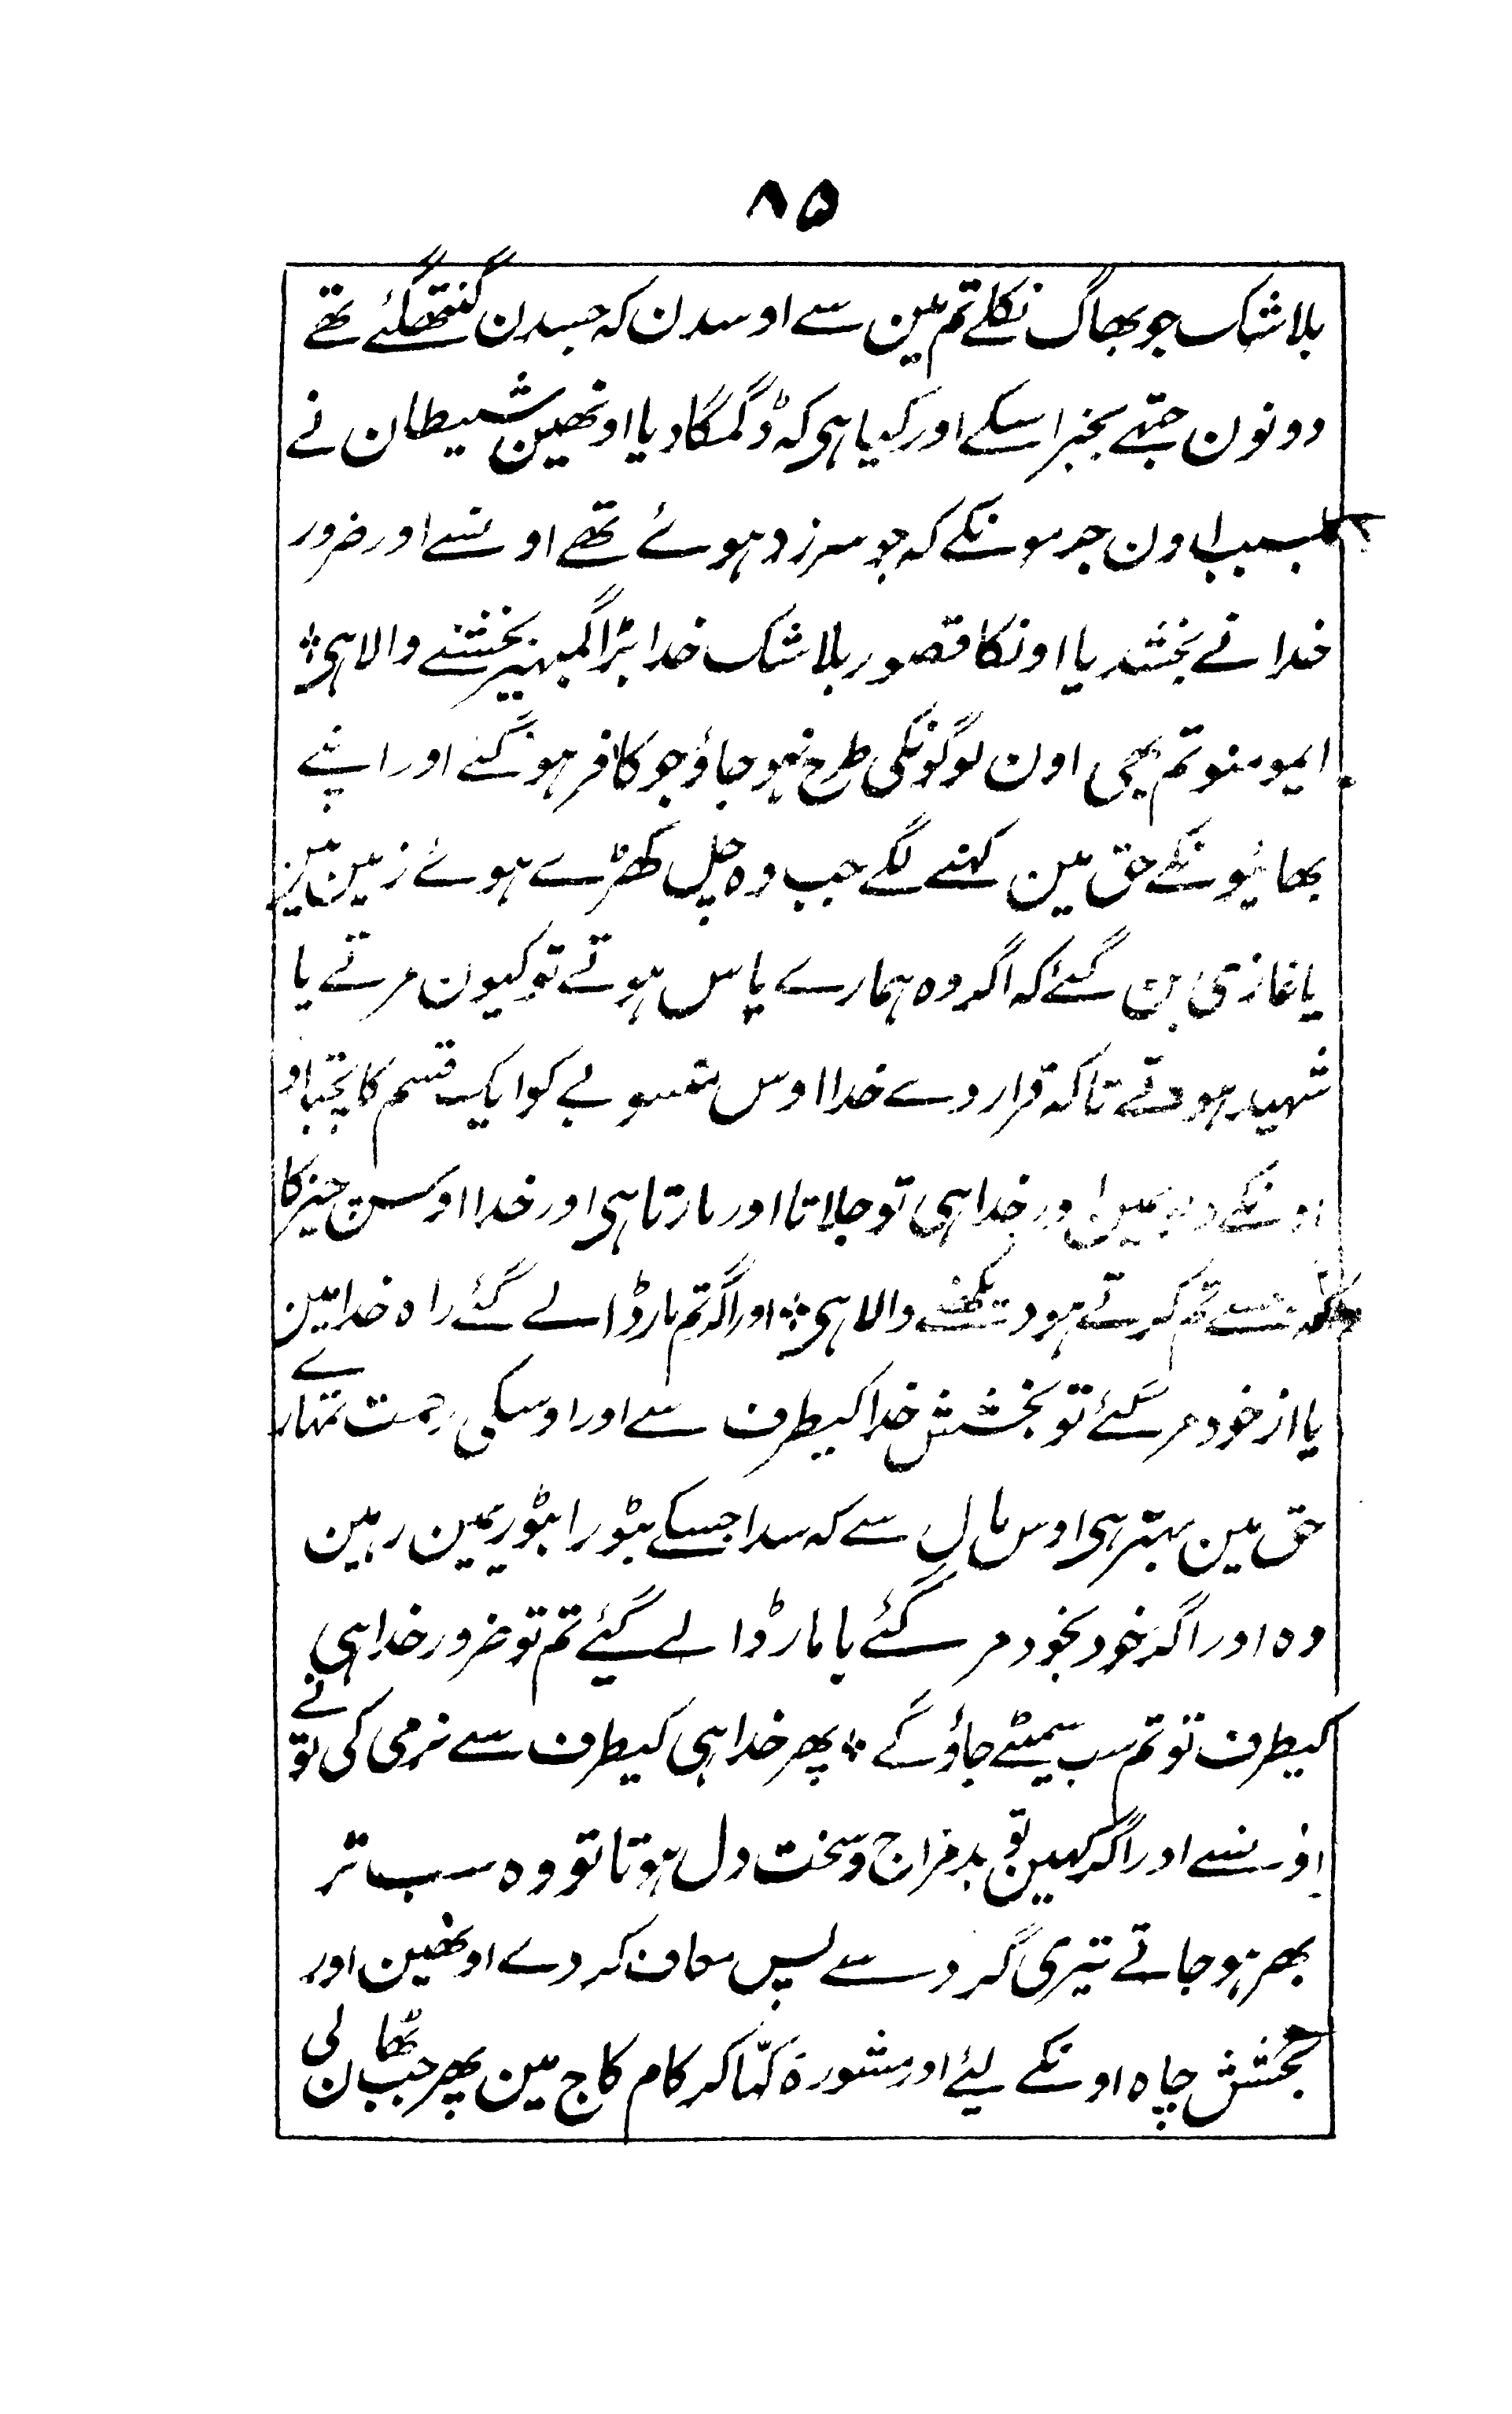 ۸۵
بلاشک جو بھاگ نکلے تم مین سے اوسدن کہ جسدن گنتھگئے تھے
دونون جتھے بجز اسکے اور کیا ہی کہ ڈگمگا دیا اونھین شیطان نے
بسبب اون جرمونکے کہ جو سرزد ہوئے تھے اونسے اور ضرور
خدا نے بخشدیا اونکا قصور بلاشک خدا بڑا گمبھیر بخشنے والا ہی ؞
ایمومنو تم بھی اون لوگونکی طرح نہو جاؤ جو کافر ہو گئے اور اپنے
بھائیونکے حق مین کہنے لگے جب وہ چل کھڑے ہوئے زمین مین
یا غازی بن گئے کہ اگر وہ ہمارے پاس ہوتے تو کیون مرتے یا
شہید ہوتے تاکہ قرار دے خدا اوس منسوبے کو ایک قسم کا پچتاو
اونکے دلونمین اور خدا ہی تو جلاتا اور مارتا ہی اور خدا اوس چیز کا
کہ جسے تم کرتے ہو دیکھنے والا ہی ؞ اور اگر تم مار ڈالے گئے راہ خدا مین
یا از خود مر گئے تو بخشش خدا کیطرف سے اور اوسکی رحمت تمہارے
حق مین بہتر ہی اوس مال سے کہ سدا جسکے بٹورا بٹوریمین رہین
وہ اور اگر خود بخود مر گئے یا مار ڈالے گئے تم تو ضرور خدا ہی
کیطرف تو تم سب سمیٹے جاؤگے ؞ پھر خدا ہی کیطرف سے نرمی کی تو نے
اونسے اور اگر کہین تو بدمزاج و سخت دل ہوتا تو وہ سب تر
بھر ہو جاتے تیری گرد سے پس معاف کر دے اونھین اور
بخشش چاہ اونکے لیئے اور مشورۃ کہا کر کام کاج مین پھر جب ٹھان لی